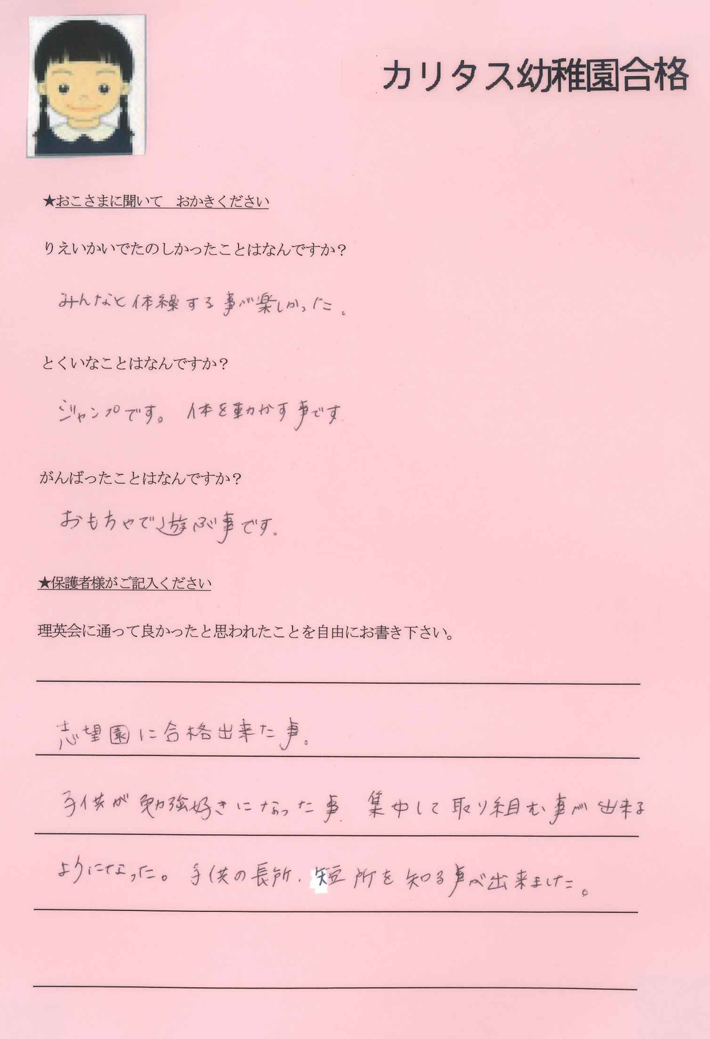 カリタス幼稚園合格
★おこさまに聞いて　おかきください
りえいかいでたのしかったことはなんですか？
みんなと体操する事が楽しかった。
とくいなことはなんですか？
ジャンプです。体を動かす事です
がんばったことはなんですか？
おもちゃで遊ぶ事です。
★保護者様がご記入ください
理英会に通って良かったと思われたことを自由にお書き下さい。
志望園に合格出来た事。
子供が勉強好きになった事　集中して取り組む事が出来る
ようになった。子供の長所、短所を知る事が出来ました。